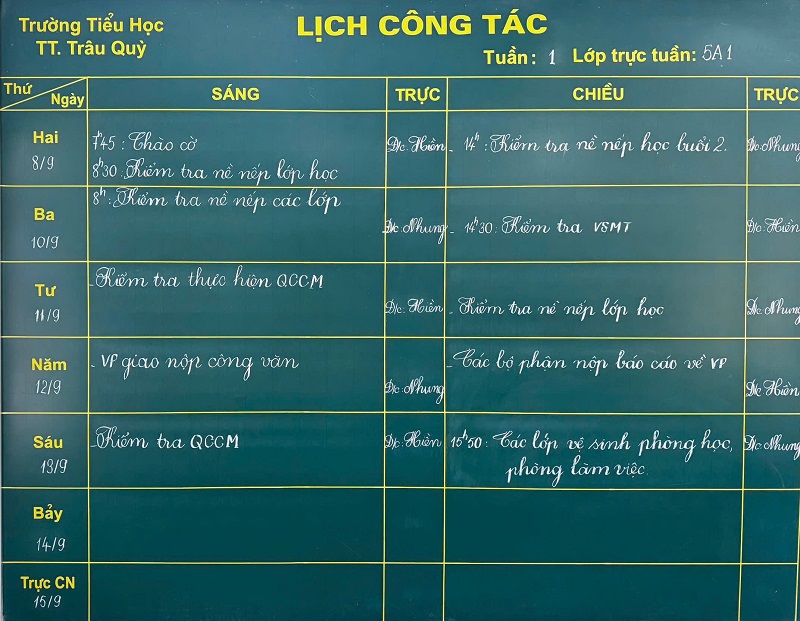 Trường Tiểu Học
TT. Trâu Quỳ
LỊCH CÔNG TÁC
Tuần: 1 Lớp trực tuần: 5A1
Thứ Ngày SÁNG TRỰC CHIỀU TRỰC
Hai
8/9
7h45: Chào cờ
8h30: Kiểm tra nề nếp lớp học
Đ/c: Hiền
- 14h: Kiểm tra nề nếp học buổi 2.
Đ/c: Nhung
Ba
10/9
8h: Kiểm tra nề nếp các lớp
Đ/c: Nhung
- 14h30: Kiểm tra VSMT
Đ/c: Hiền
Tư
11/9
- Kiểm tra thực hiện QCCM
Đ/c: Hiền
- Kiểm tra nề nếp lớp học
Đ/c: Nhung
Năm
12/9
- VP giao nộp công văn
Đ/c: Nhung
- Các bộ phận nộp báo cáo về VP
Đ/c: Hiền
Sáu
13/9
- Kiểm tra QCCM
Đ/c: Hiền
15h50: Các lớp vệ sinh phòng học,
phòng làm việc.
Đ/c: Nhung
Bảy
14/9
Trực CN
15/9